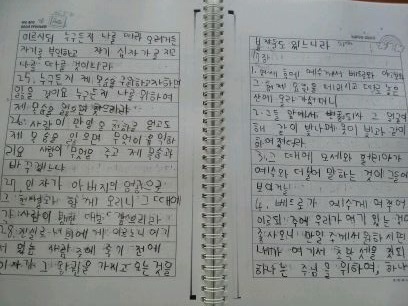 이르시되 누구든지 나를 따라 오려거든
자기를 부인하고 자기 십자가를 지고
나를 따를 것이니라
25. 누구든지 제 목숨을 구원하고자하면
잃을 것이요 누구든지 나를 위하여
제 목숨을 잃으면 찾으리라
26. 사람이 만일 온 천하를 얻고도
제 목숨을 잃으면 무엇이 유익하
리요 사람이 무엇을 주고 제 목숨과
바꾸겠느냐
27. 인자가 아버지의 영광으로
그 천사들과 함께 오리니 그 때에
각 사람이 행한 대로 갚으리라
28. 진실로 너희에게 이르노니 여기
서 있는 사람 중에 죽기 전에
인자가 그 왕권을 가지고 오는 것을
볼 자들도 있느니라
1. 엿새 후에 예수께서 베드로와
그 형제 요한을 데리시고 따로 높은
산에 올라 가셨더니
2. 그들 앞에서 변형되사 그 얼굴이
해 같이 빛나며 옷이 빛과 같이
희어졌더라
3. 그 때에 모세와 엘리야가
예수와 더불어 말하는 것이 그들에게
보이거늘
4. 베드로가 예수께 여쭈어
이르되 주여 우리가 여기 있는 것이
좋사오니 만일 주께서 원하시면
내가 여기서 초막 셋을 짓되
하나는 주님을 위하여, 하나